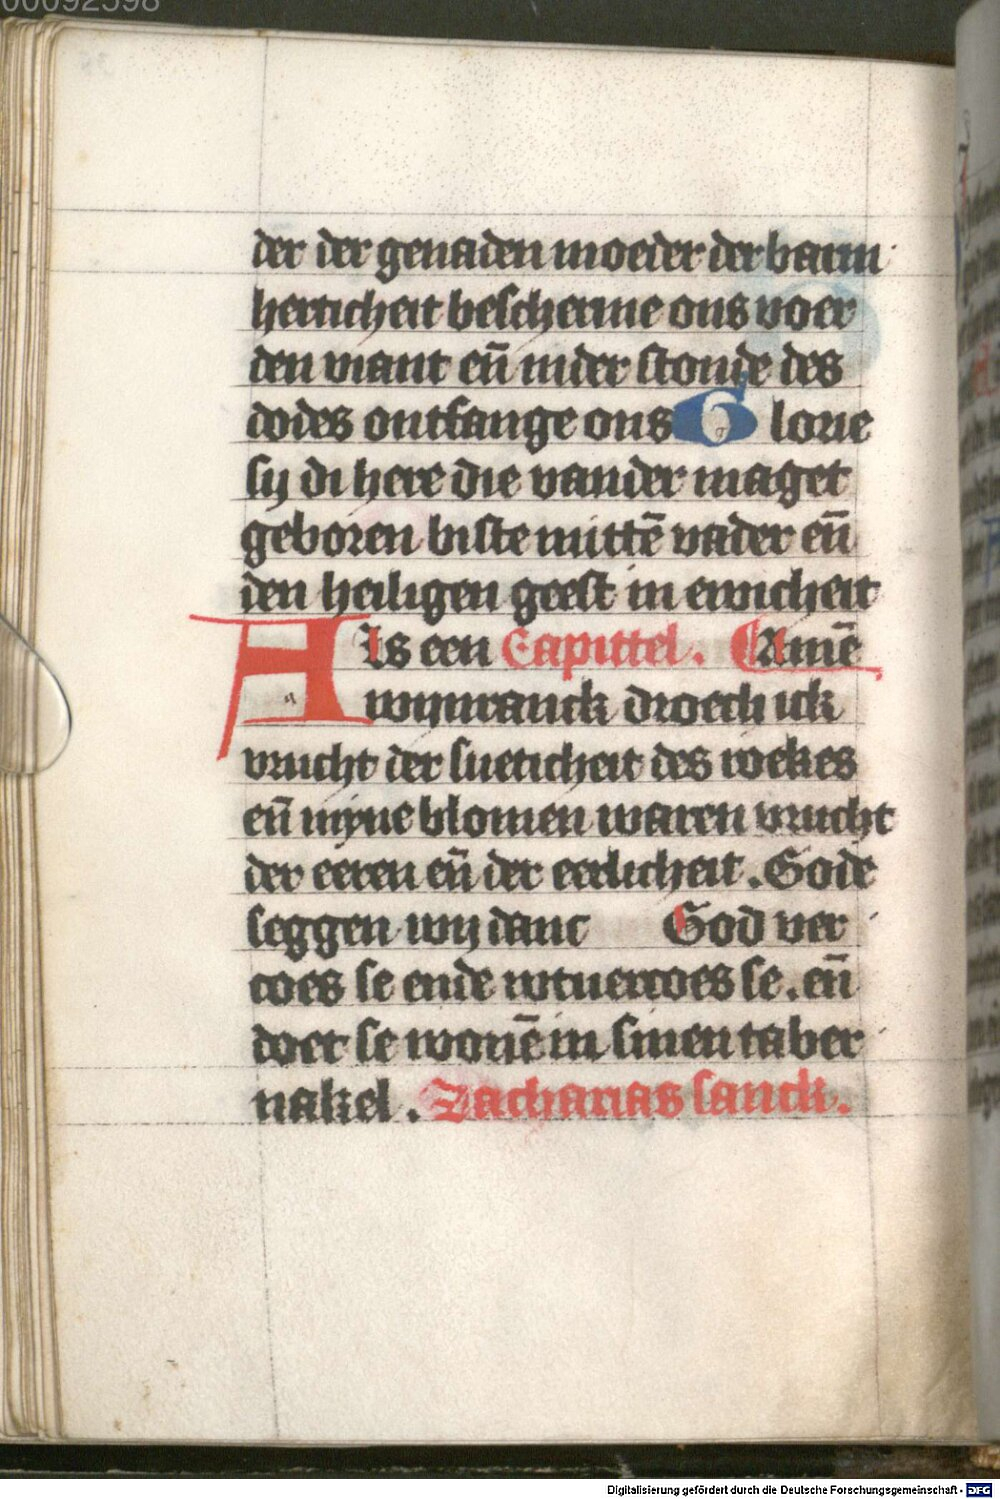 00092598
der der genaden moeder der barm
herticheit bescherme ons voer
den viant eñ in der stonde des
dodes ontfange ons Glorie
sij di here die vander maget
geboren biste mittē vader eñ
den heiligen geest in ewicheit
Als een Capittel. Amē
wijnranck droech ick
vrucht der sueticheit des roekes
eñ mijne blomen waren vrucht
der eeren eñ der eerlicheit. Gode
seggen wij danc God ver
coes se ende wtuercoes se. eñ
doet se wonē in sinen taber
nakel. Zacharias sanck.
Digitalisierung gefördert durch die Deutsche Forschungsgemeinschaft - DFG